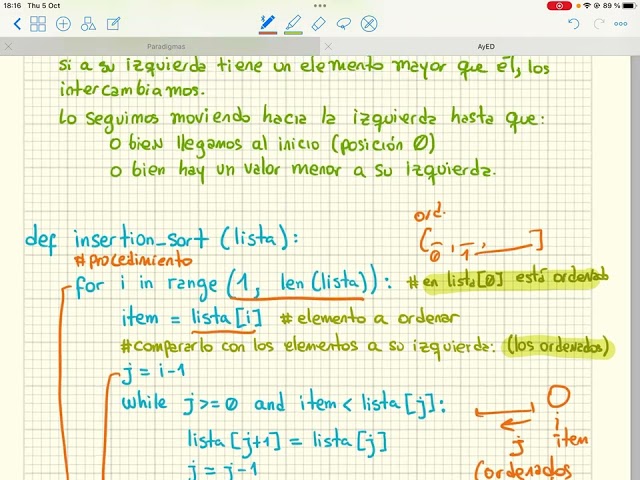 18:16 Thu 5 Oct
89 %
Paradigmas
AyED
si a su izquierda tiene un elemento mayor que él, los
intercambiamos.
Lo seguimos moviendo hacia la izquierda hasta que:
o bien llegamos al inicio (posición 0)
o bien hay un valor menor a su izquierda.
ord.
[ _ , _ , ___ ]
0 1
def insertion_sort (lista):
# procedimiento
for i in range (1, len(lista)): # en lista[0] está ordenado
item = lista[i] # elemento a ordenar
# compararlo con los elementos a su izquierda: (los ordenados)
j = i-1
while j>=0 and item < lista[j]:
lista[j+1] = lista[j]
j = j-1
i
j item
(ordenados